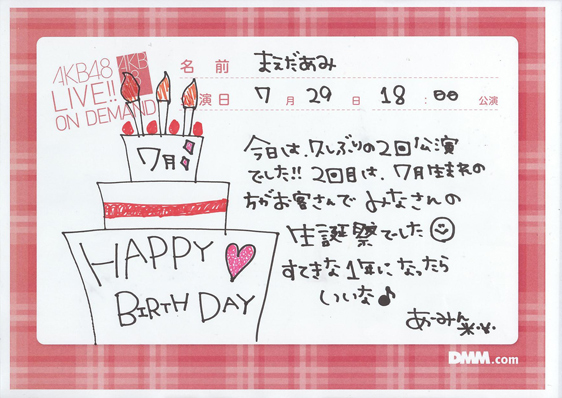 AKB48
LIVE!!
ON DEMAND
AKB
48
名前 まえだあみ
演日 7月29日 18:00 公演
今日は、久しぶりの2回公演
でした!! 2回目は、7月生まれの
方がお客さんで みなさんの
生誕祭でした
すてきな1年になったら
いいな♪
あーみん
7月
HAPPY
BIRTHDAY
DMM.com